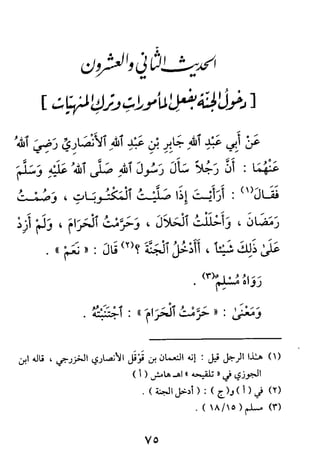 الحديث الثاني والعشرون
[ دخول الجنة بفعل المأمورات وترك المنهيات ]
عَنْ أَبِي عَبْدِ اللهِ جَابِرِ بْنِ عَبْدِ اللهِ الأَنْصَارِيِّ رَضِيَ اللهُ
عَنْهُمَا : أَنَّ رَجُلاً سَأَلَ رَسُولَ اللهِ صَلَّى اللهُ عَلَيْهِ وَسَلَّمَ
فَقَالَ(١) : أَرَأَيْتَ إِذَا صَلَّيْتُ الْمَكْتُوبَاتِ ، وَصُمْتُ
رَمَضَانَ ، وَأَحْلَلْتُ الْحَلاَلَ ، وَحَرَّمْتُ الْحَرَامَ ، وَلَمْ أَزِدْ
عَلَىٰ ذَلِكَ شَيْئاً ، أَأَدْخُلُ الْجَنَّةَ ؟(٢) قَالَ : « نَعَمْ » .
رَوَاهُ مُسْلِمٌ(٣) .
وَمَعْنَىٰ : « حَرَّمْتُ الْحَرَامَ » : اجْتَنَبْتُهُ .
(١) هـٰذا الرجل قيل : إنه النعمان بن قوقل الأنصاري الخزرجي ، قاله ابن
الجوزي في « تلقيحه » اهـ هامش ( أ )
(٢) في ( أ ) و( ج ) : ( أدخل الجنة ) .
(٣) مسلم ( ١٥/ ١٨ )
٧٥